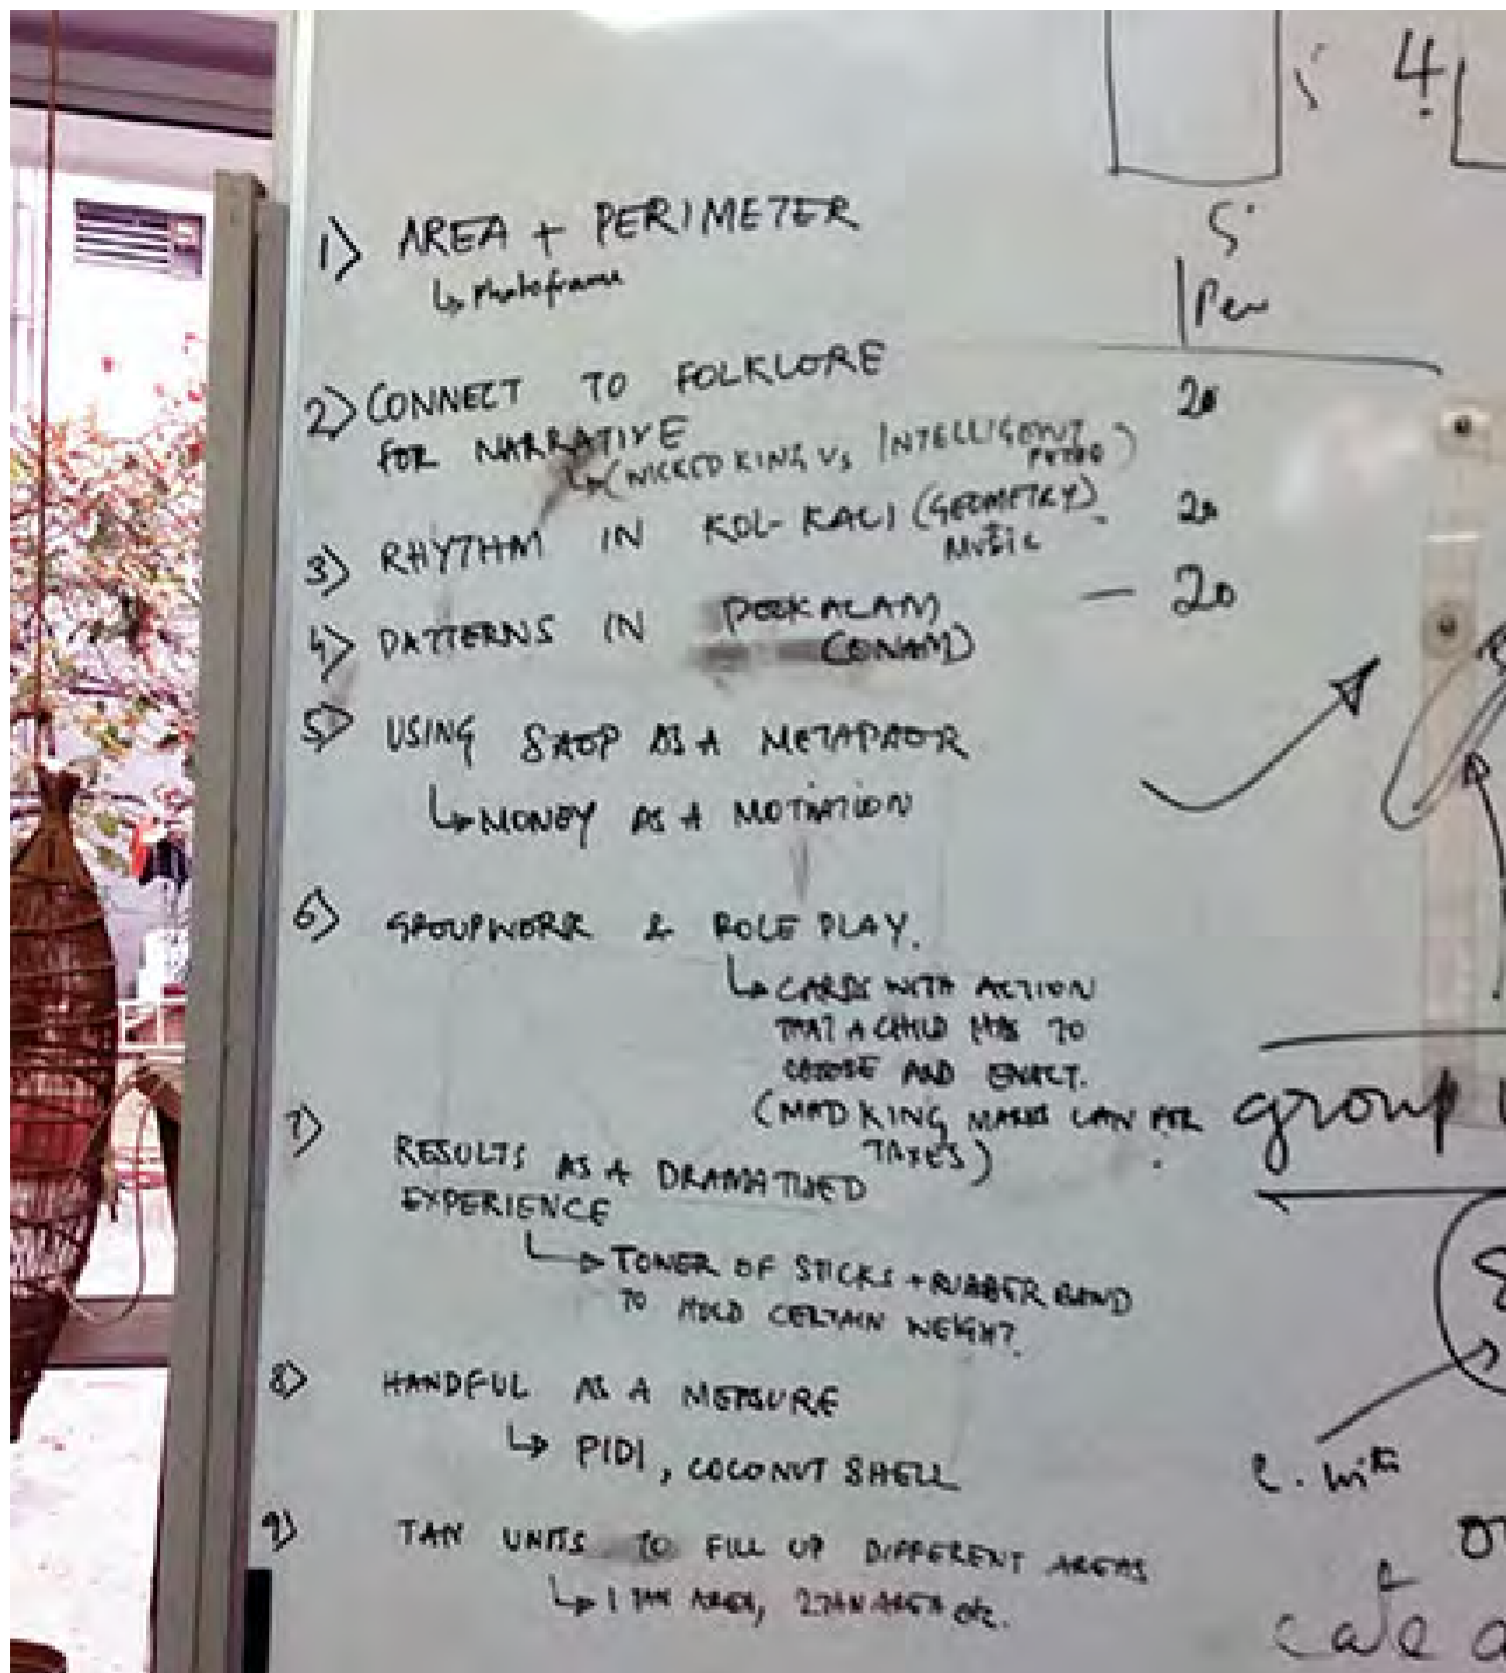 1) AREA + PERIMETER
↳ Photoframe
2) CONNECT TO FOLKLORE
FOR NARRATIVE
↳ (WICKED KING VS INTELLIGENT
3) RHYTHM IN KOL-KALI (GEOMETRY)
MUSIC
4) PATTERNS IN POOKALAM
(ONAM)
5) USING SHOP AS A METAPHOR
↳ MONEY AS A MOTIATION
6) GROUPWORK & ROLE PLAY.
↳ CARDS WITH ACTION
THAT A CHILD HAS TO
CHOOSE AND ENACT.
(MAD KING MAKES LAW FOR
TAXES)
7) RESULTS AS A DRAMATISED
EXPERIENCE
↳ TOWER OF STICKS + RUBBER BAND
TO HOLD CERTAIN WEIGHT.
8) HANDFUL AS A MEASURE
↳ PIDI, COCONUT SHELL
9) TAN UNITS TO FILL UP DIFFERENT AREAS
↳ 1 TAN AREA, 2 TAN AREA etc.
4
5
Per
20
20
— 20
group
8
cate